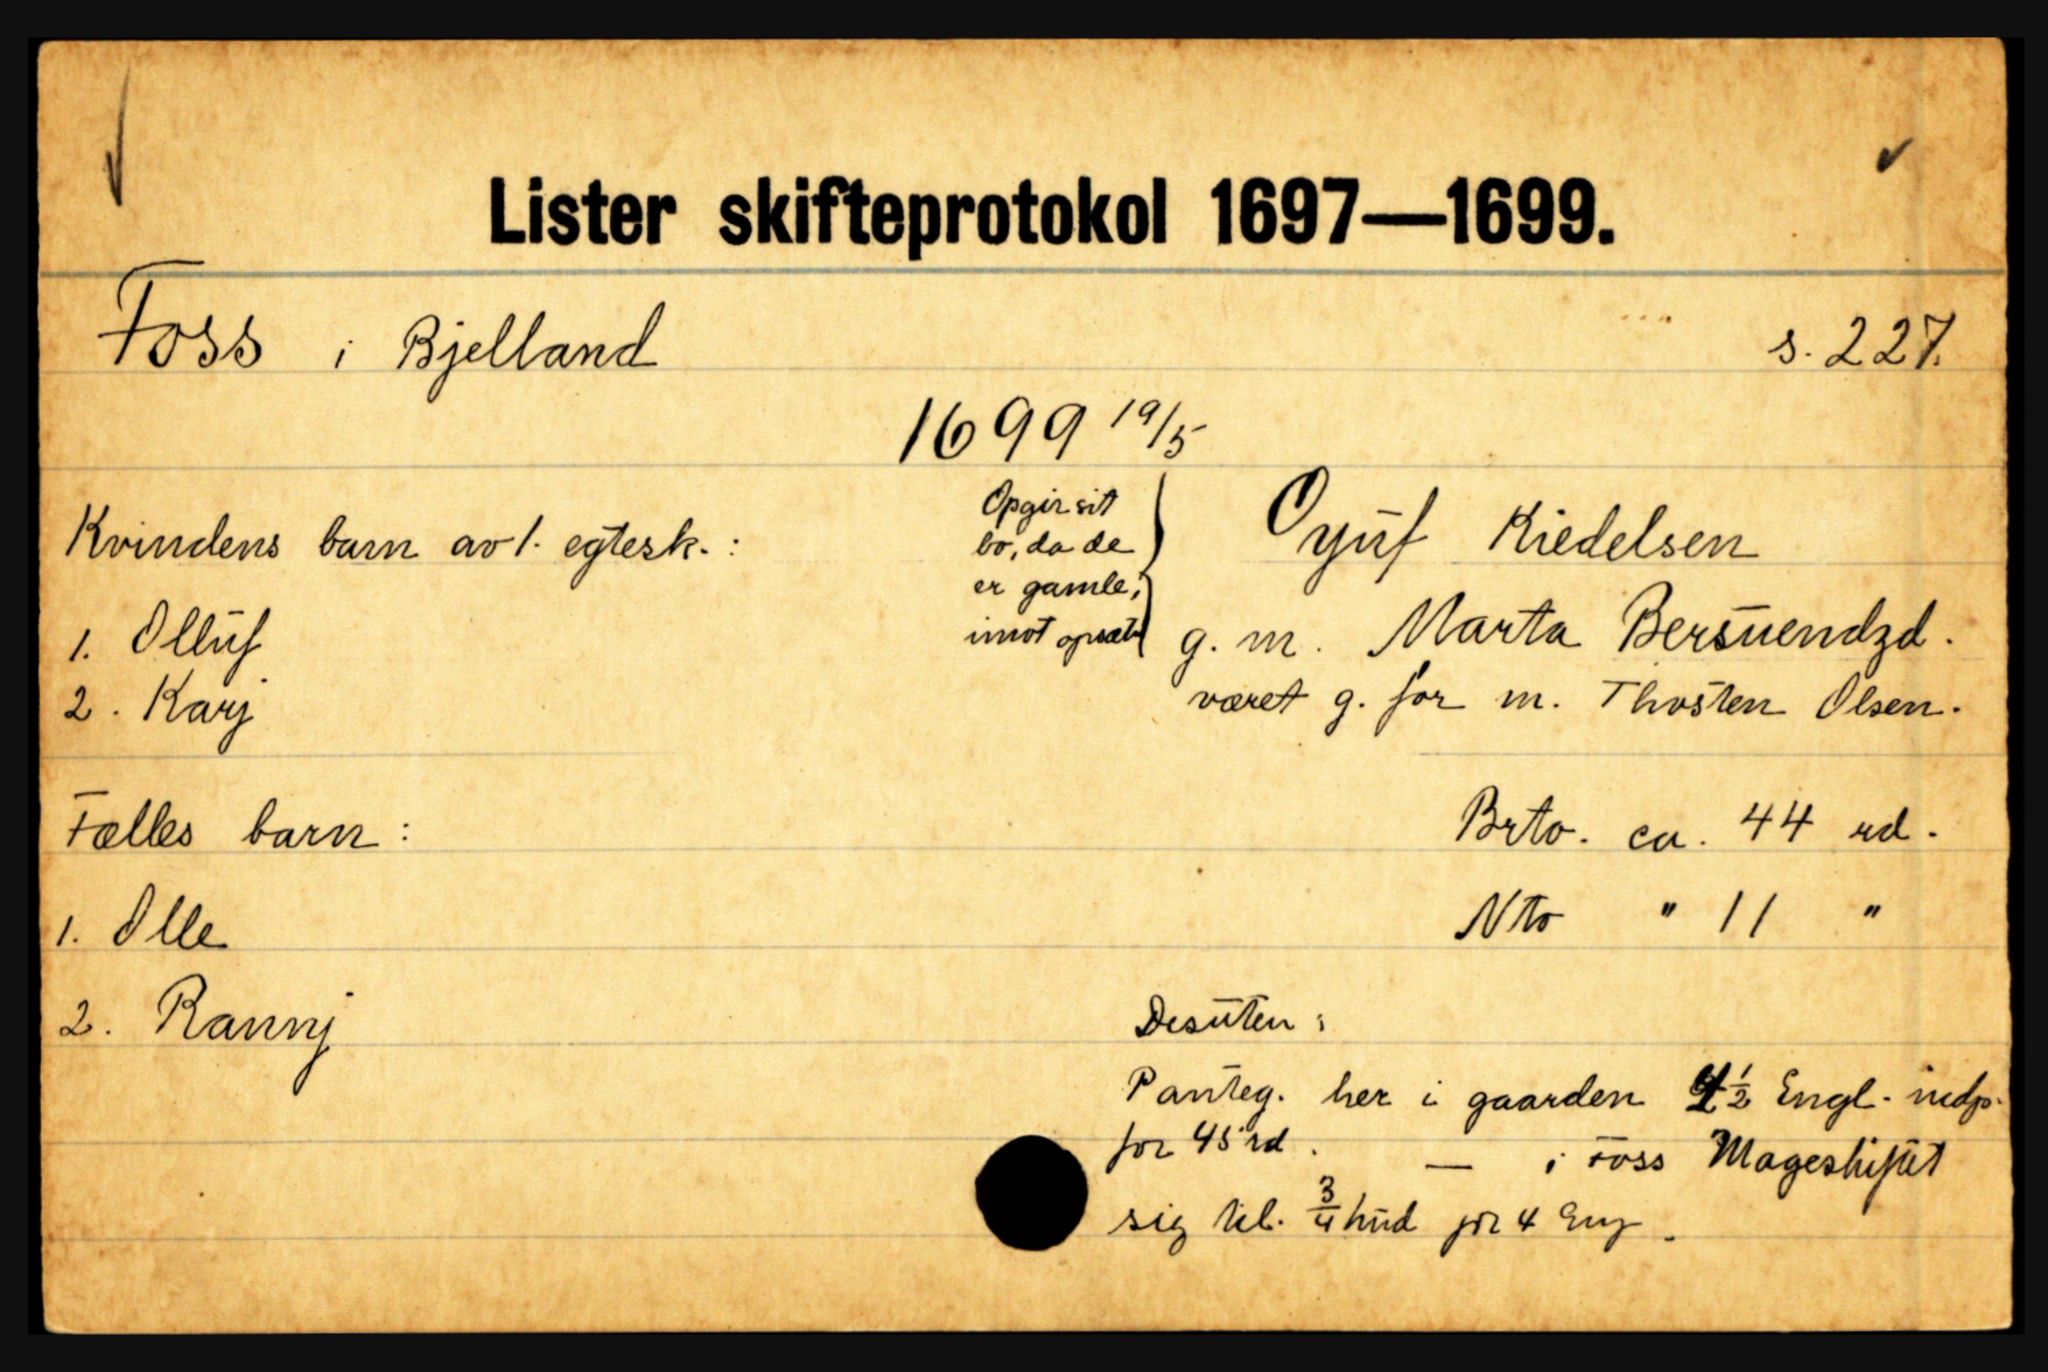 Lister skifteprotokol 1697—1699.
Foss i Bjelland s. 227.
1699 19/5
Kvindens barn av 1. egtesk. :
1. Olluf
2. Karj
Opgir sit
bo, da de
er gamle,
imot opsæt
Oyuf Kiedelsen
g. m. Marta Bersuendzd.
været g. før m. Thosten Olsen.
Fælles barn :
1. Olle
2. Rannj
Brto. ca. 44 rd.
Nto " 11 "
Desuten :
Panteg. her i gaarden ½ Engl. indp.
for 45 rd. — i Foss Mageskiftet
sig til. 3/4 hud for 4 Eng.